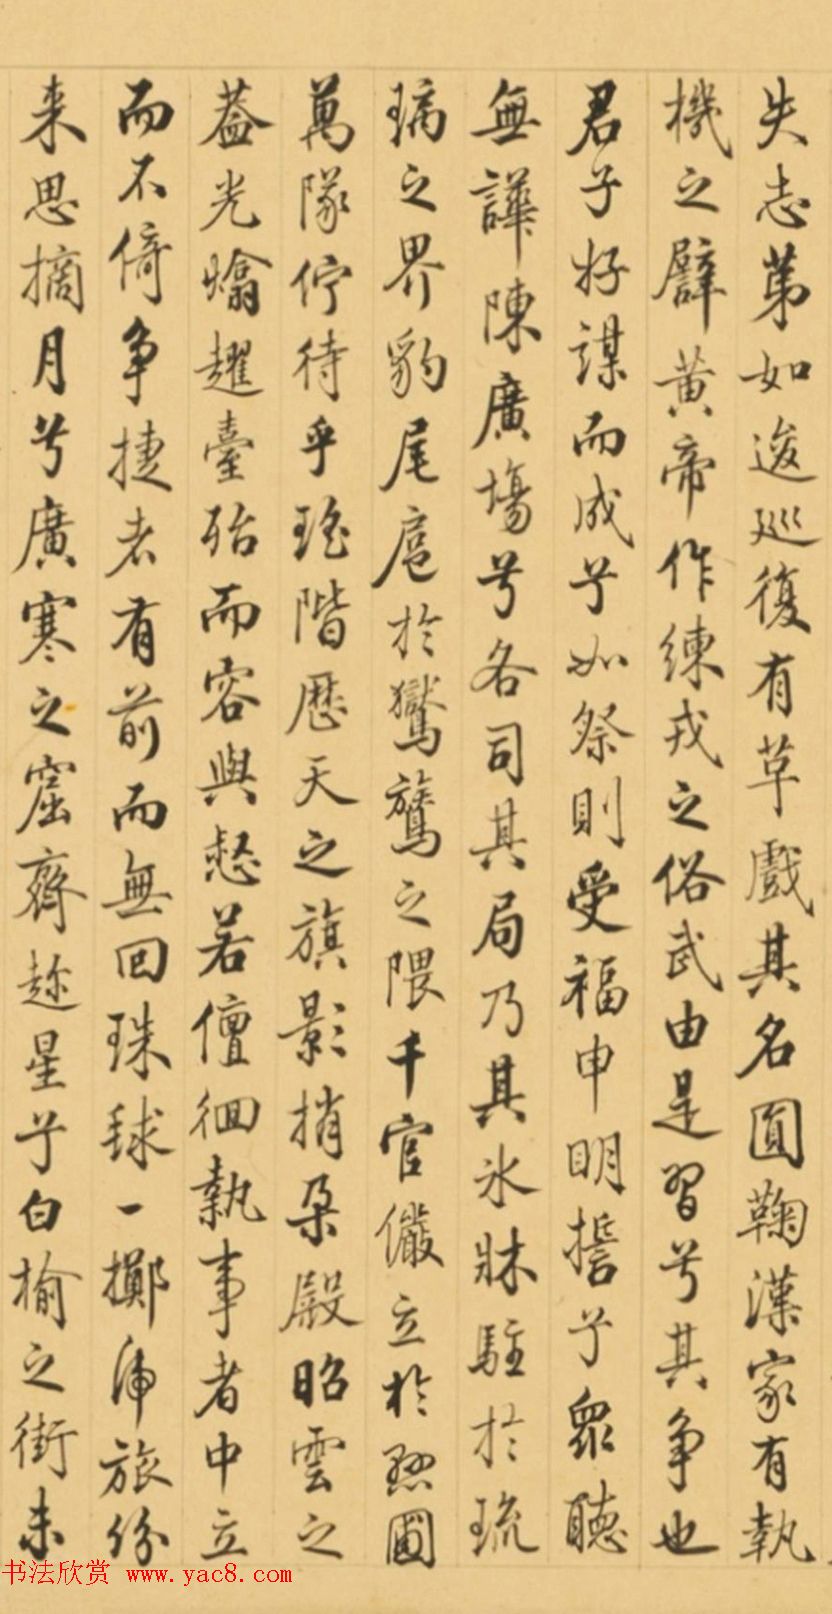 失志第如逡巡復有草戲其名圓鞠漢家有執
機之辟黄帝作練戎之俗武由是習兮其争也
君子好謀而成兮如祭則受福申明誓乎衆聽
無譁陳廣場兮各司其局乃其氷牀駐於琉
璃之界豹尾扈於鸑鷟之隈千官儼立於懸圃
萬隊佇待乎瑤階歷天之旗影捎朵殿昭雲之
蓋光爚趯臺殆而容與憖若儃佪執事者中立
而不倚争捷者有前而無回珠毬一擲虎旅紛
来思摘月兮廣寒之窟齊趂星乎白榆之街未
书法欣赏 www.yac8.com